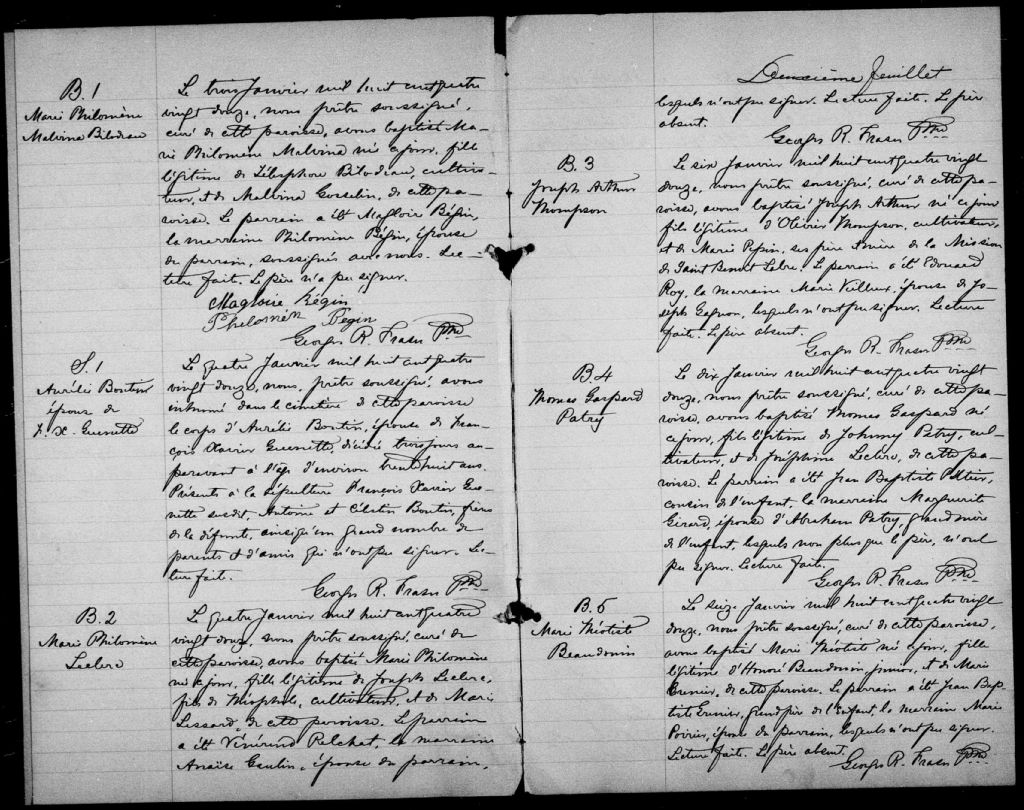 B. 1
Marie Philomène
Malvina Bilodeau
Le trois Janvier mil huit cent quatre
vingt douze, nous prêtre soussigné,
curé de cette paroisse, avons baptisé Ma-
rie Philomène Malvina né ce jour, fille
légitime de Télesphore Bilodeau, cultiva-
teur, et de Malvina Gosselin, de cette pa-
roisse. Le parrain a été Magloire Bégin,
la marraine Philomène Bégin, épouse
du parrain, soussignés avec nous. Lec-
ture faite. Le père n'a pu signer.
Magloire Bégin
Philomèn Begin
Georges R. Fraser Ptre
S. 1
Aurélie Boutin
épouse de
F. X. Guenette
Le quatre Janvier mil huit cent quatre
vingt douze, nous, prêtre soussigné, avons
inhumé dans le cimetière de cette paroisse
le corps d'Aurélie Boutin, épouse de Fran-
çois Xavier Guenette, décédée trois jours au-
paravant à l'âge d'environ trente huit ans.
Présents à la sépulture François Xavier Gue-
nette susdit, Antoine et Célestin Boutin, frères
de la défunte, ainsi qu'un grand nombre de
parents et d'amis qui n'ont pu signer. Lec-
ture faite.
Georges R. Fraser Ptre
B. 2
Marie Philomène
Leclerc
Le quatre Janvier mil huit cent quatre
vingt douze, nous prêtre soussigné, curé de
cette paroisse, avons baptisé Marie Philomène
né ce jour, fille légitime de Joseph Leclerc,
fils de Théophile, cultivateur, et de Marie
Lessard, de cette paroisse. Le parrain
a été Vénérend Pelchat, la marraine
Anaïse Gaulin, épouse du parrain,
Deuxième feuillet
lesquels n'ont pu signer. Lecture faite. Le père
absent.
Georges R. Fraser Ptre
B. 3
Joseph Arthur
Thompson
Le six Janvier mil huit cent quatre vingt
douze, nous prêtre soussigné, curé de cette pa-
roisse, avons baptisé Joseph Arthur né ce jour
fils légitime d'Olivier Thompson, cultivateur,
et de Marie Pepin, ses père et mère de la Mission
de Saint Benoit Labre. Le parrain a été Edouard
Roy, la marraine Marie Veilleux, épouse de Jo-
seph Gagnon, lesquels n'ont pu signer. Lecture
faite. Le père absent.
Georges R. Fraser Ptre
B. 4
Thomas Gaspard
Patry
Le dix Janvier mil huit cent quatre vingt
douze, nous prêtre soussigné, curé de cette pa-
roisse, avons baptisé Thomas Gaspard né
ce jour, fils légitime de Johnny Patry, cul-
tivateur, et de Joséphine Leclerc, de cette pa-
roisse. Le parrain a été Jean Baptiste
cousin de l'enfant, la marraine Marguerite
Girard, épouse d'Abraham Patry, grand'mère
de l'enfant, lesquels non plus que le père, n'ont
pu signer. Lecture faite.
Georges R. Fraser Ptre
B. 5
Marie Théotiste
Beaudouin
Le seize Janvier mil huit cent quatre vingt
douze, nous prêtre soussigné, curé de cette paroisse,
avons baptisé Marie Théotiste né ce jour, fille
légitime d'Honoré Beaudouin junior, et de Marie
Grenier, de cette paroisse. Le parrain a été Jean Bap-
tiste Grenier, grand père de l'enfant, la marraine Marie
Poirier, épouse du parrain, lesquels n'ont pu signer.
Lecture faite. Le père absent.
Georges R. Fraser Ptre